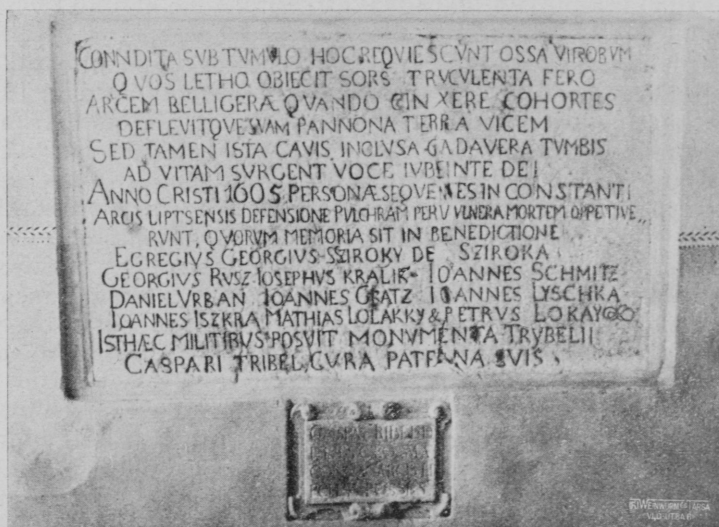 CONNDITA SVB TVMVLO HOC REQVIESCVNT OSSA VIROBVM
QVOS LETHO OBIECIT SORS TRVCVLENTA FERO
ARCEM BELLIGERÆ QVANDO CINXERE COHORTES
DEFLEVITQVE SVAM PANNONA TERRA VICEM
SED TAMEN ISTA CAVIS INCLVSA CADAVERA TVMBIS
AD VITAM SVRGENT VOCE IVBEINTE DEI
ANNO CRISTI 1605 PERSONÆ SEQVENES IN CONSTANTI
ARCIS LIPTSENSIS DEFENSIONE PVLCHRAM PER V VVLNERA MORTEM OPPETIVE,,
RVNT, QVORVM MEMORIA SIT IN BENEDICTIONE
EGREGIVS GEORGIVS SZIROKY DE SZIROKA
GEORGIVS RVSZ IOSEPHVS KRALIK IOANNES SCHMITZ
DANIEL VRBAN IOANNES IOANNES LYSCHKA
IOANNES ISZKRA MATHIAS LOLAKKY & PETRVS LOKAY
ISTHÆC MILITIBVS POSVIT MONVMENTA TRVBELII
CASPARI TRIBEL, CVRA PATERNA SVIS